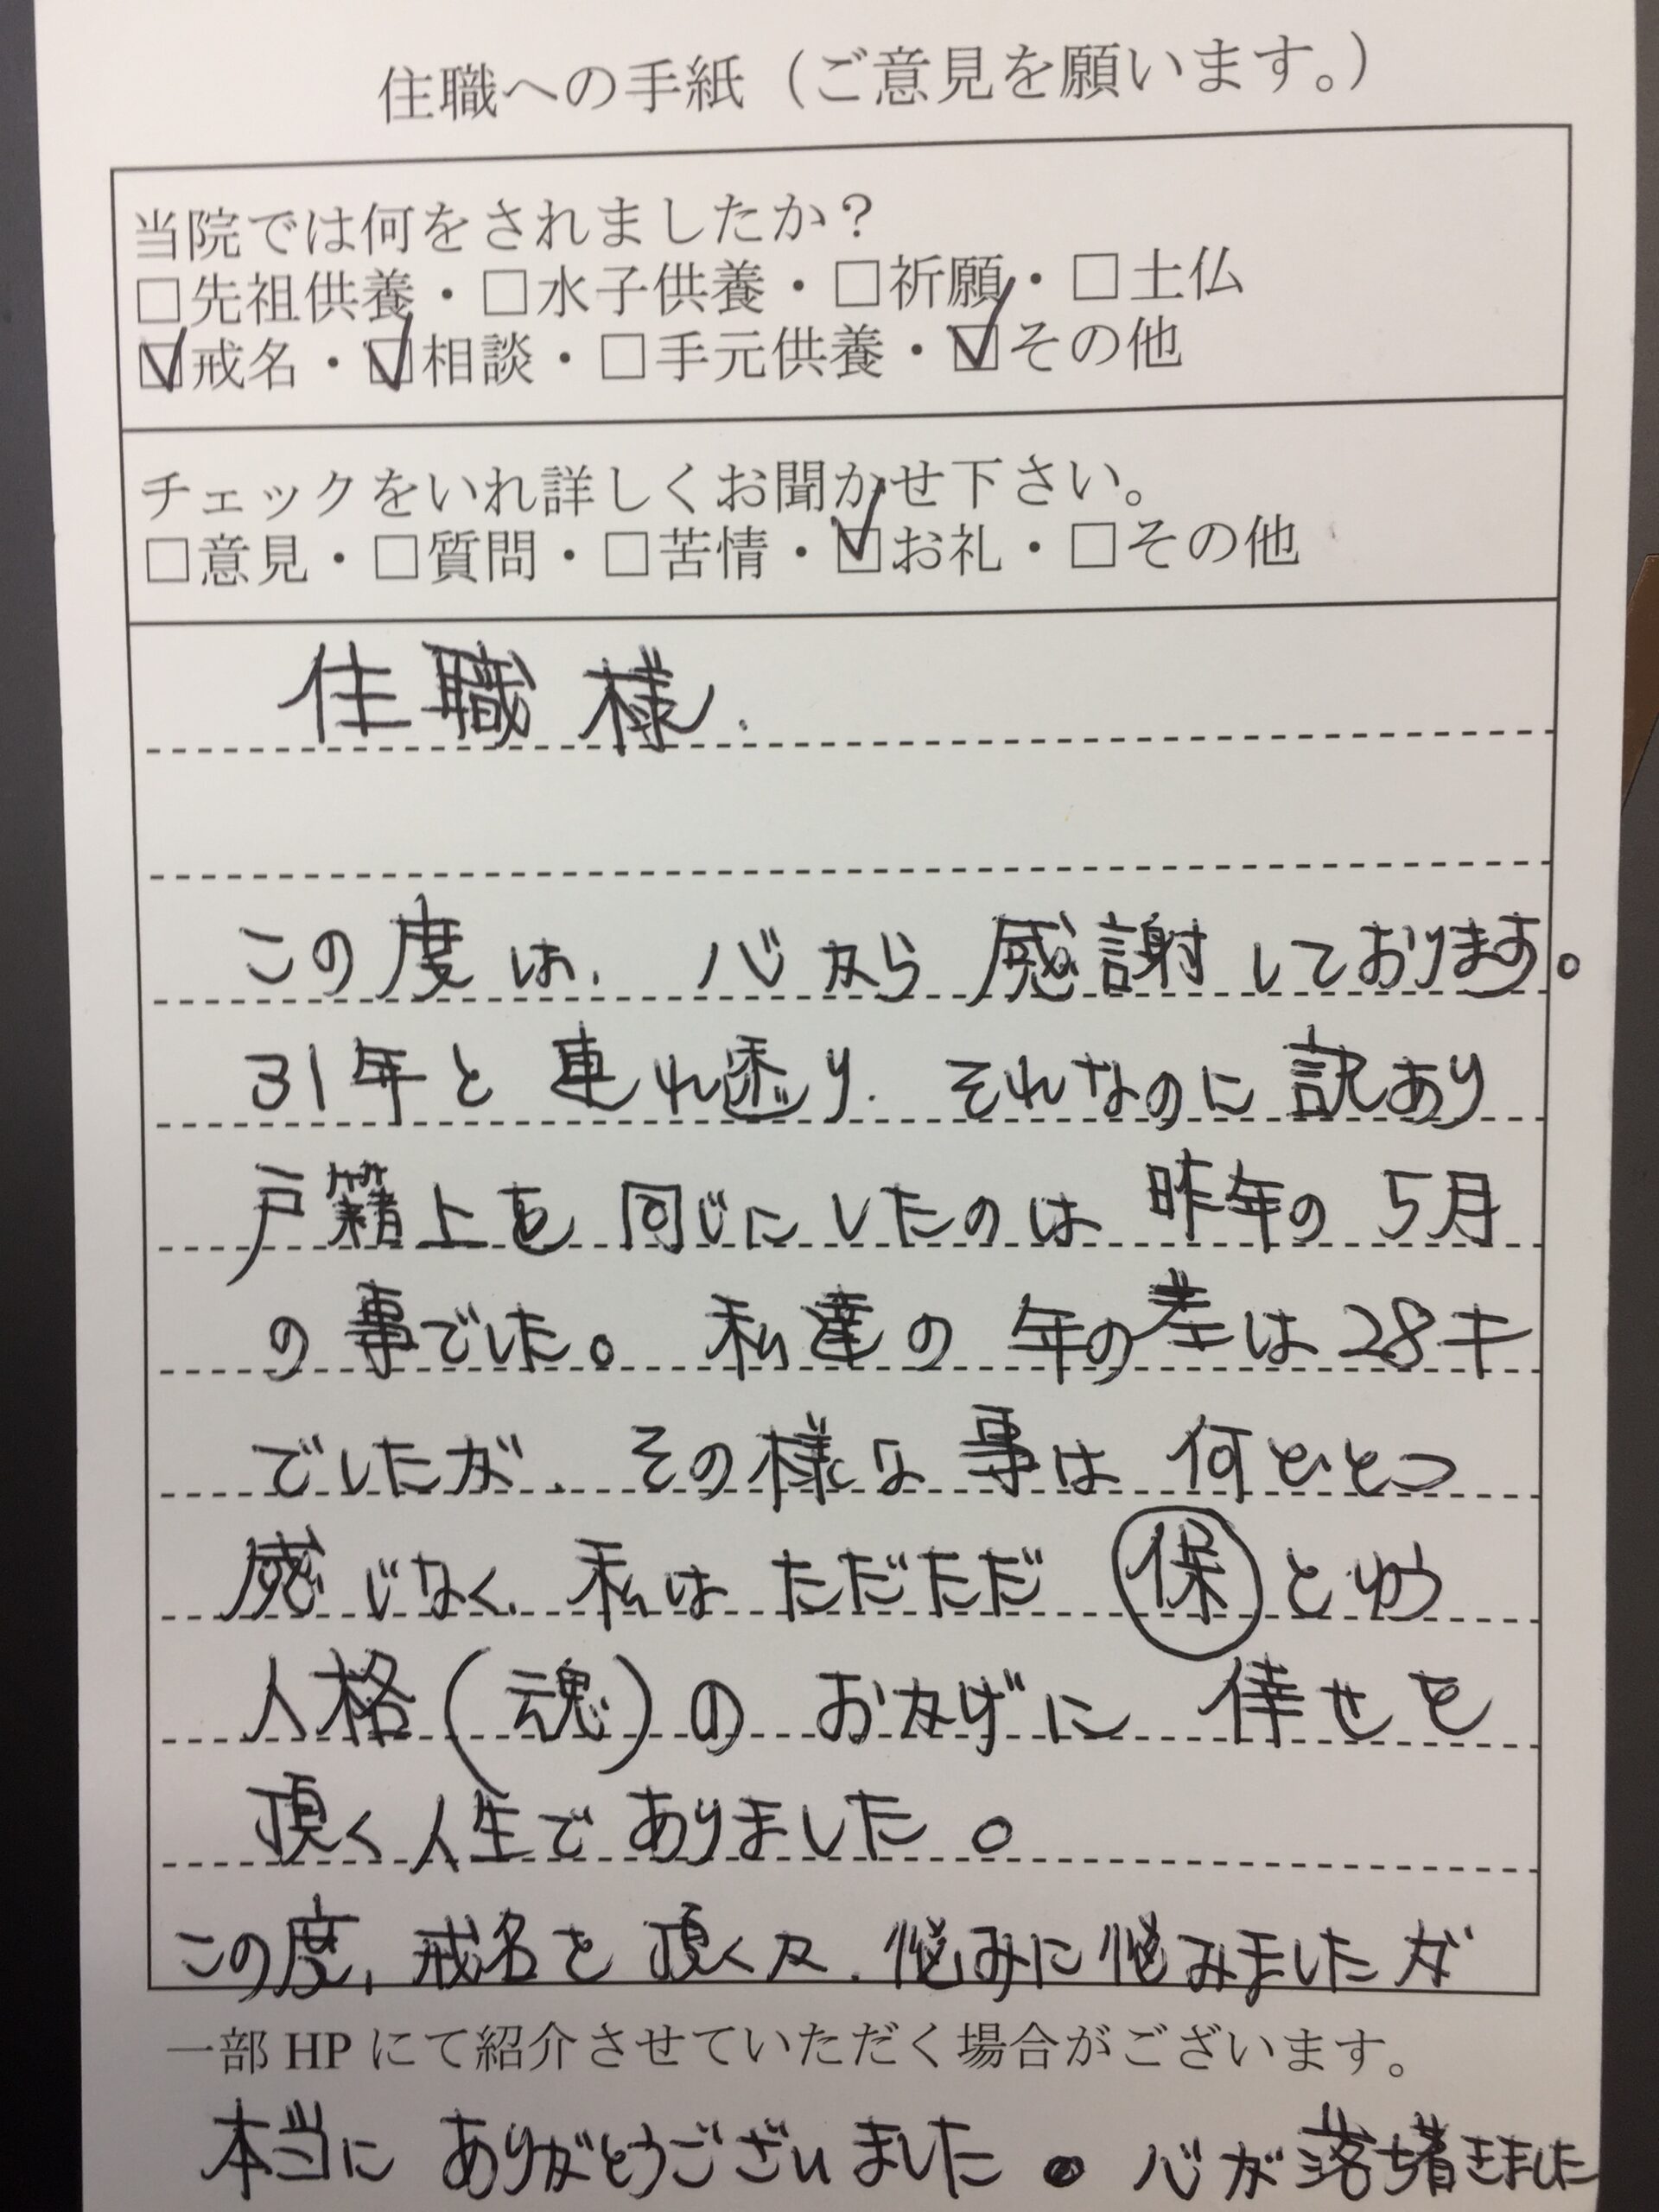 住職への手紙（ご意見を願います。）
当院では何をされましたか？
□先祖供養・□水子供養・□祈願・□土仏
☑戒名・☑相談・□手元供養・☑その他
チェックをいれ詳しくお聞かせ下さい。
□意見・□質問・□苦情・☑お礼・□その他
住職様.
この度は、心から感謝しております。
31年と連れ添り、それなのに訳あり
戸籍上を同じにしたのは昨年の5月
の事でした。私達の年の差は28才
でしたが、その様な事は何をひとつ
感じなく、私はただただ保とゆう
人格(魂)のおかげに倖せを
頂く人生でありました。
この度、戒名を頂く又、悩みに悩みましたが
一部HPにて紹介させていただく場合がございます。
本当にありがとうございました。心が落ち着きました